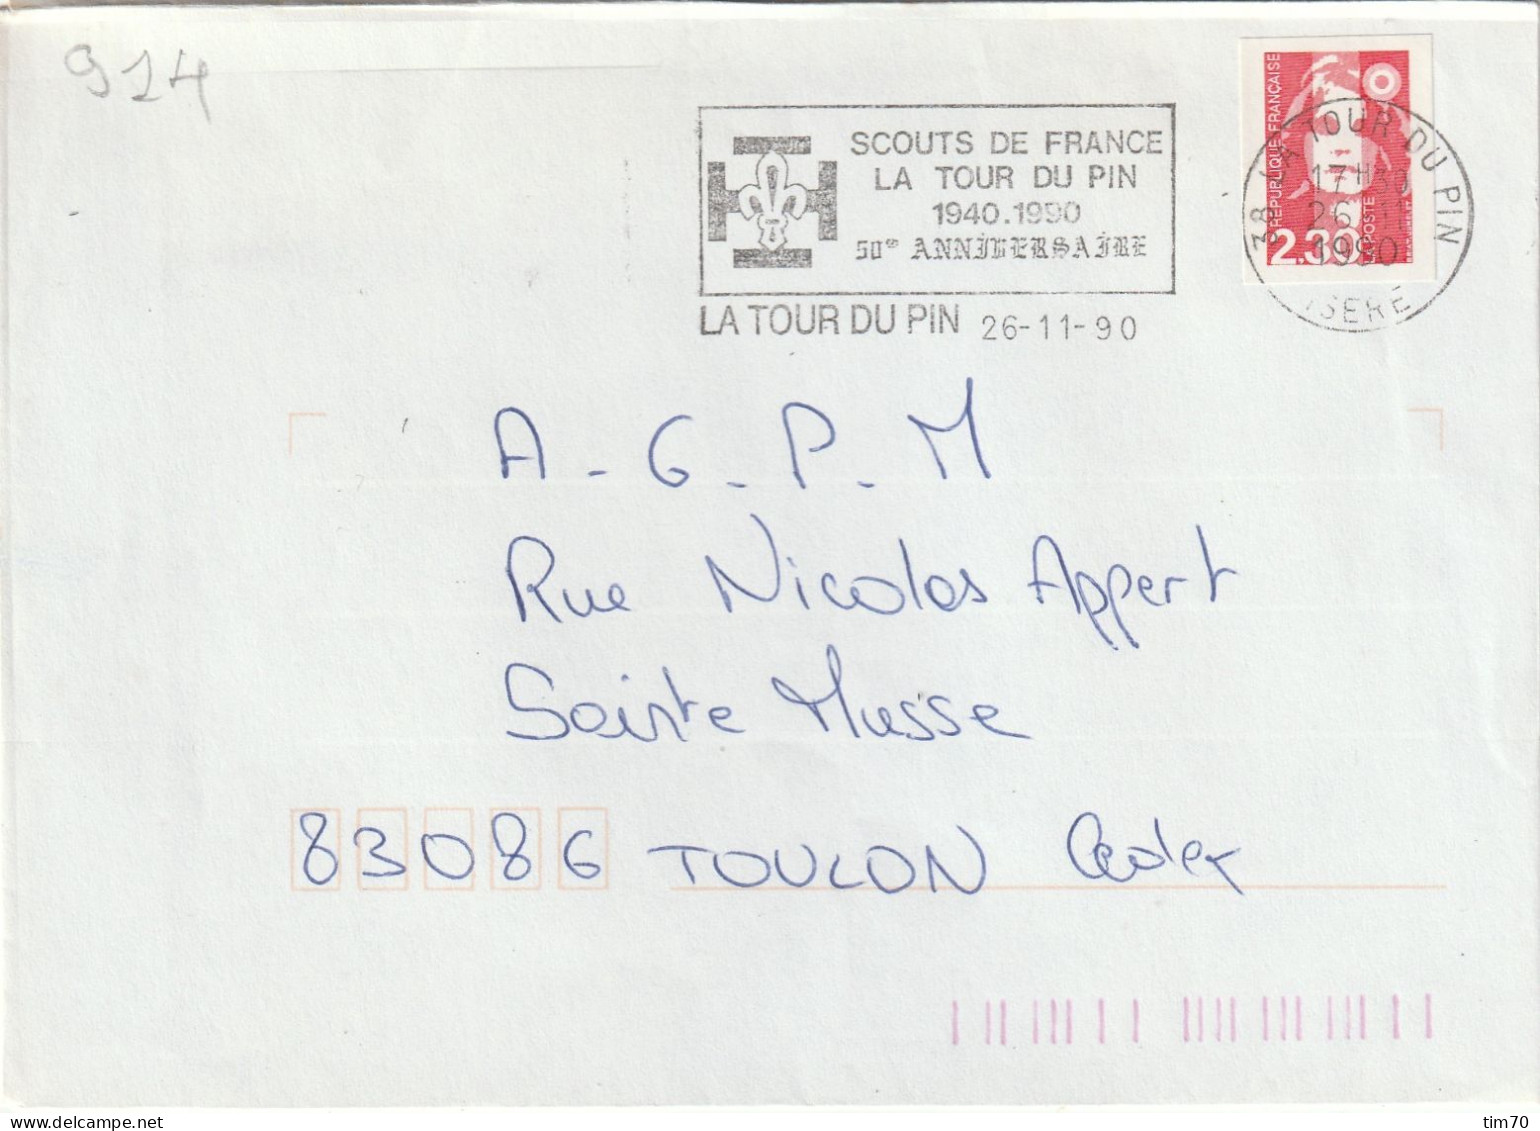 914
SCOUTS DE FRANCE
LA TOUR DU PIN
1940.1990
50e ANNIVERSAIRE
LA TOUR DU PIN 26-11-90
RÉPUBLIQUE FRANÇAISE
LA POSTE
2.30
38 LA TOUR DU PIN
17H30
26-11
1990
ISERE
A-G-P-M
Rue Nicolas Appert
Sainte Musse
83086 TOULON Cedex
delcampe.net
tim70